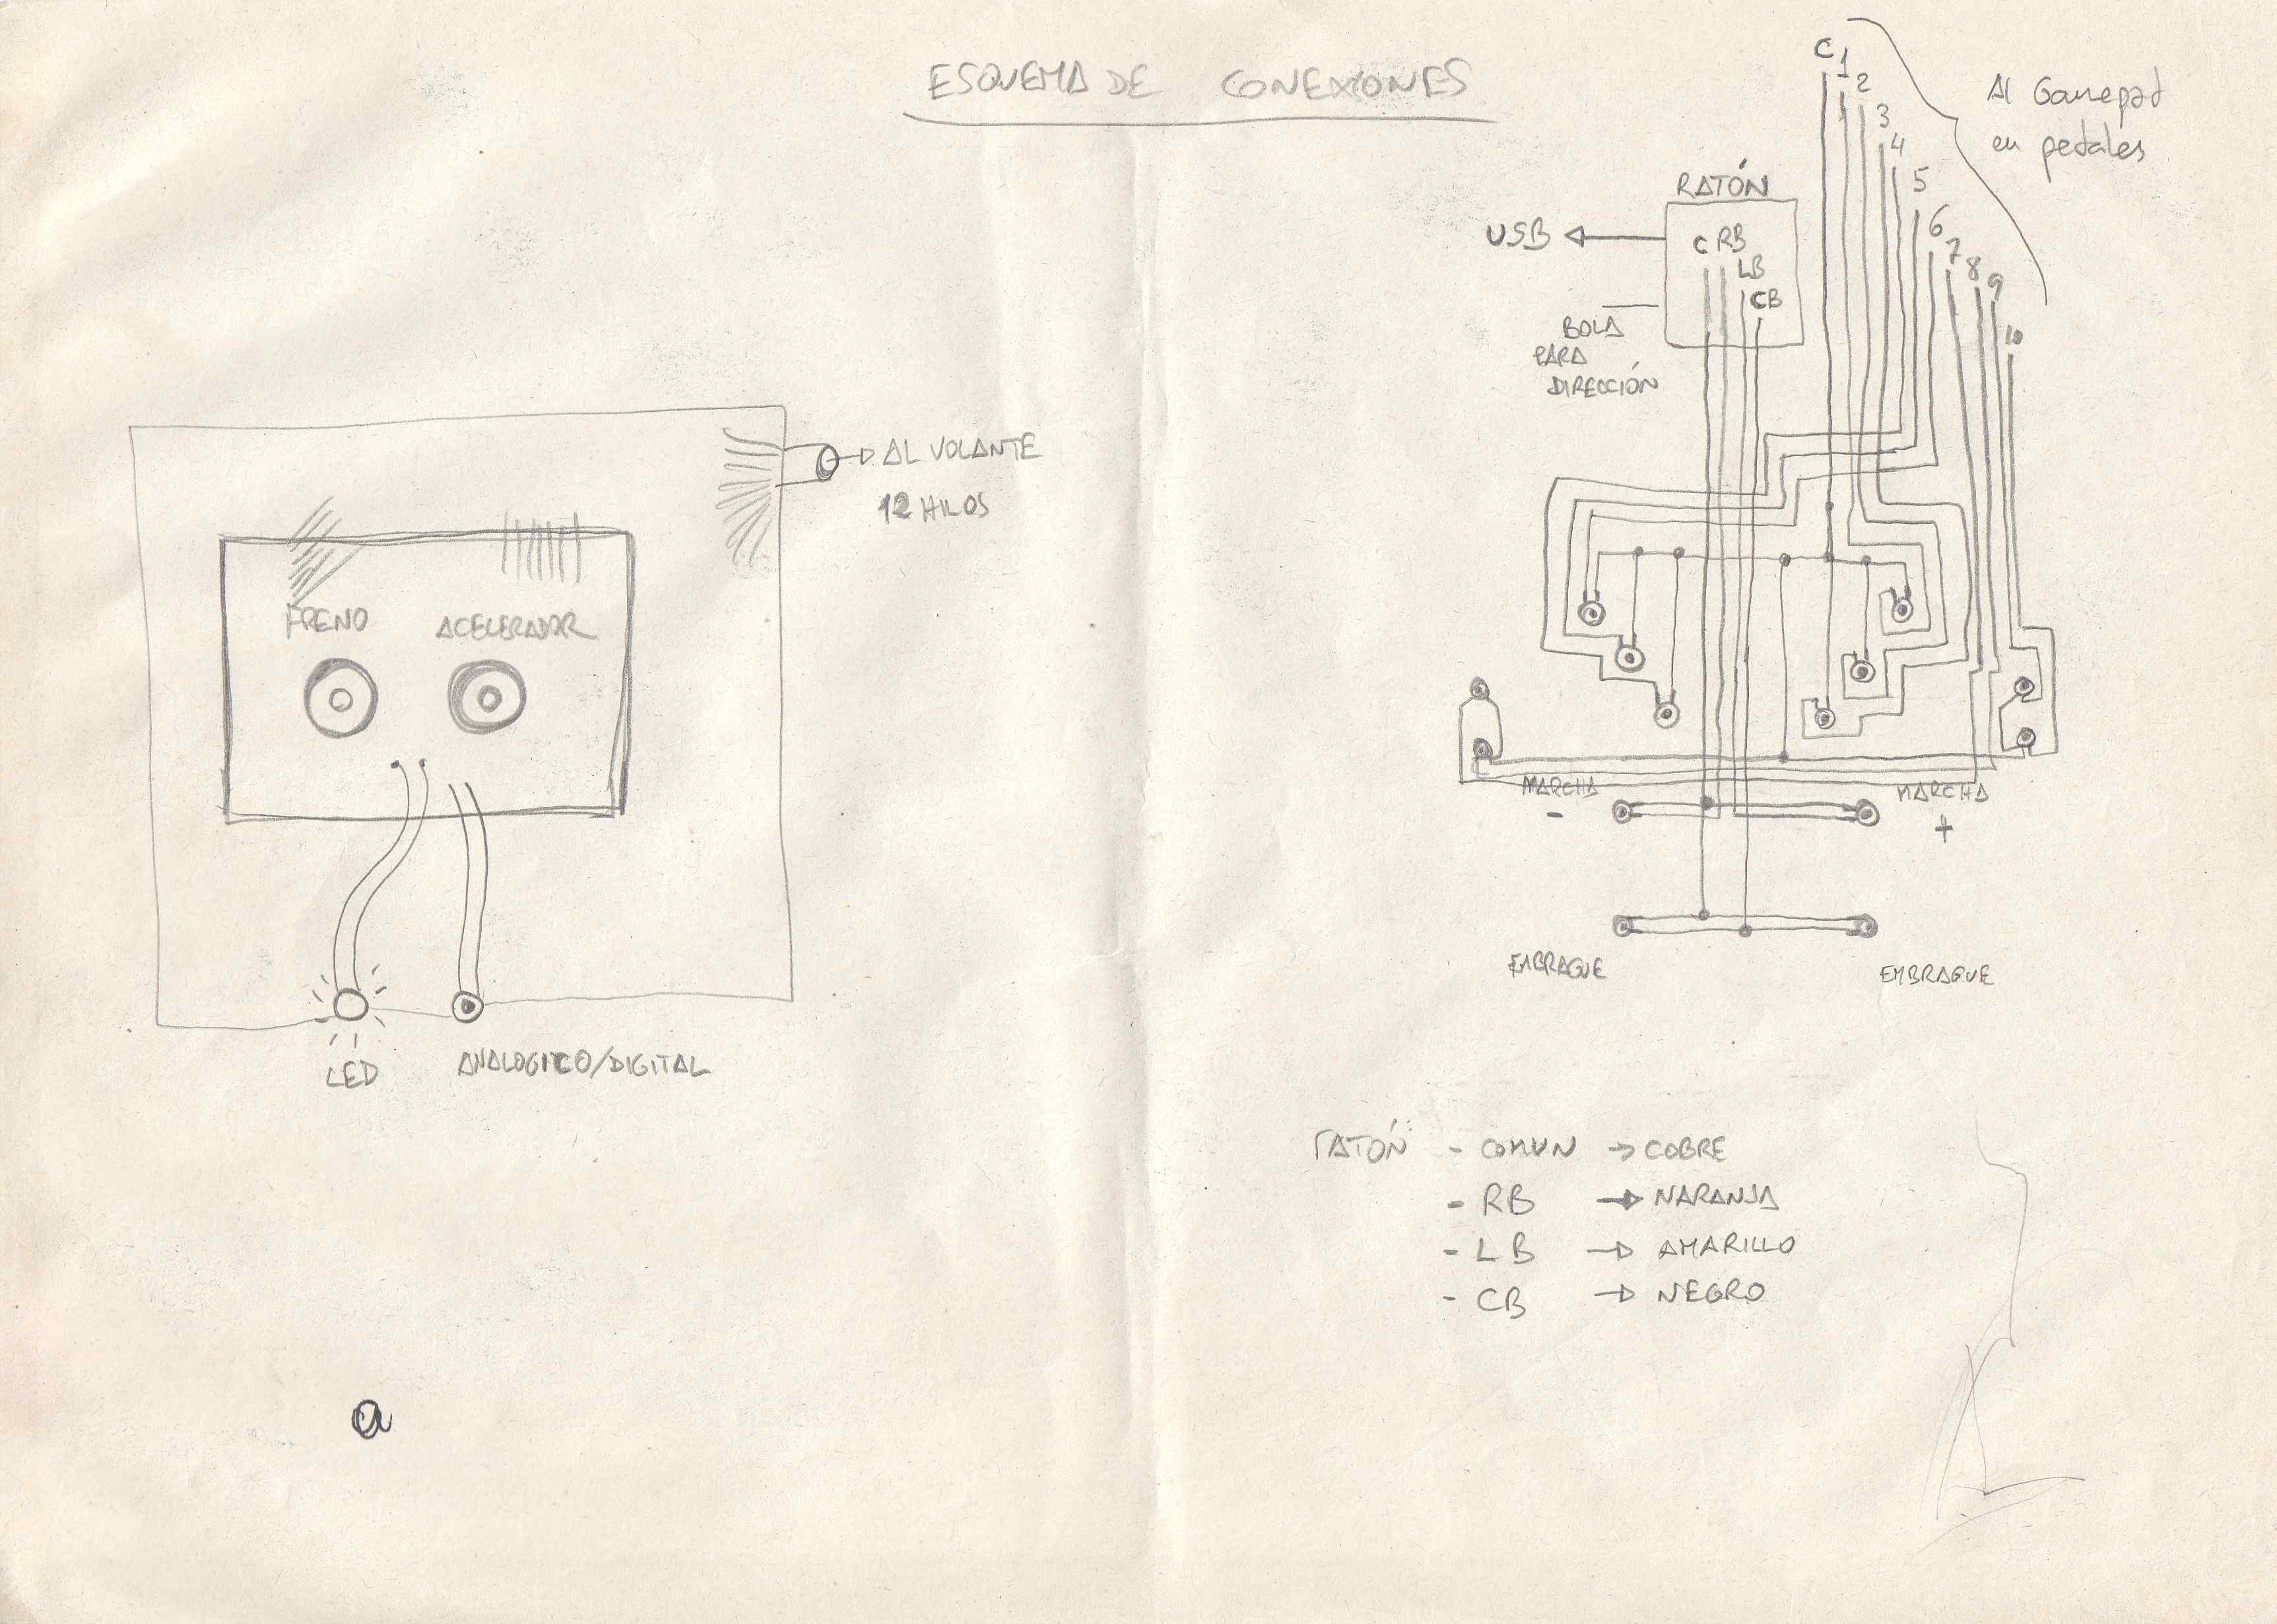 ESQUEMA DE CONEXIONES
AL VOLANTE
12 HILOS
FRENO
ACELERADOR
LED
ANALOGICO/DIGITAL
a
C
1
2
3
4
5
6
7
8
9
10
Al Gamepad
en pedales
RATÓN
USB
C RB
LB
CB
BOLA
PARA
DIRECCIÓN
MARCHA
-
MARCHA
+
EMBRAGUE
EMBRAGUE
RATÓN: - COMUN → COBRE
- RB → NARANJA
- LB → AMARILLO
- CB → NEGRO